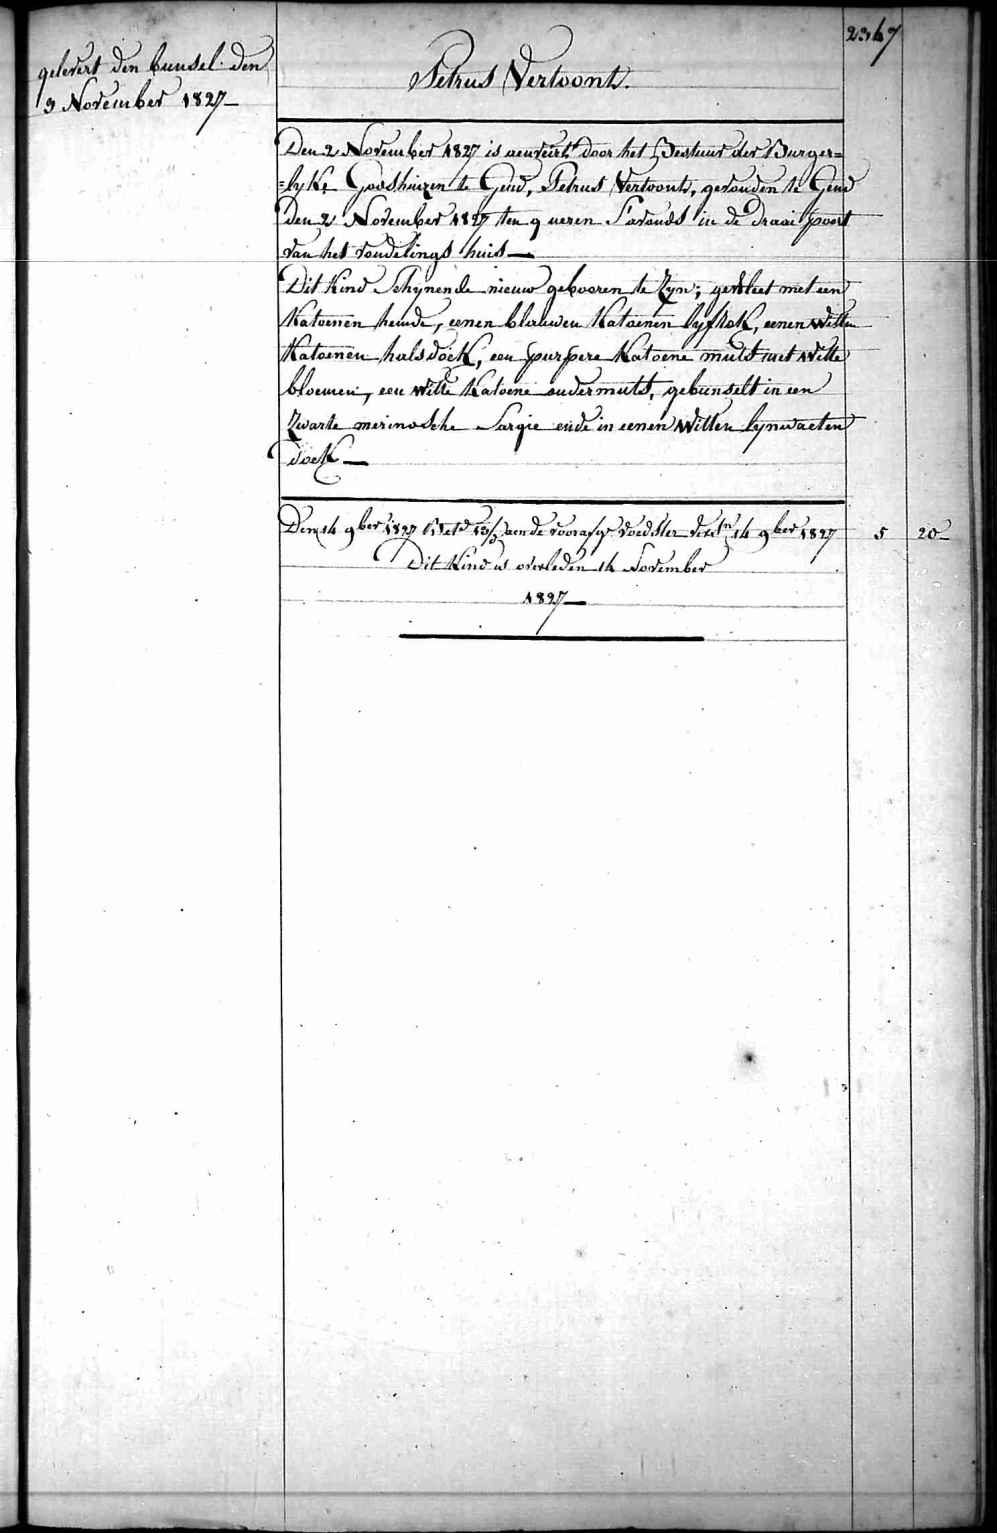 2367
gelevert den bunsel den
3 November 1827
Petrus Vertoont.
Den 2 November 1827 is aenveirt door het Bestuur der Burger=
=lyke Godshuizen te Gend, Petrus Vertoont, gevonden te Gend
Den 2 November 1827 ten 9 ueren S'avonds in de draai poort
van het vondelings huis
Dit Kind Schynende nieuw gebooren te Zyn; gekleet met een
Katoenen hemde, eenen blauwen Katoenen lyfrok, eenen Witten
Katoenen halsdoek, een purpere Katoene muts met Witte
bloemen, een Witte Katoene ondermuts, gebunselt in een
Zwarte merinosche Sargie ende in eenen Witten lynwaeten
doek
Den 14 9ber 1827 aen de voorasg. voedster 14 9ber 1827 5 20
Dit Kind is overleden 14 November
1827